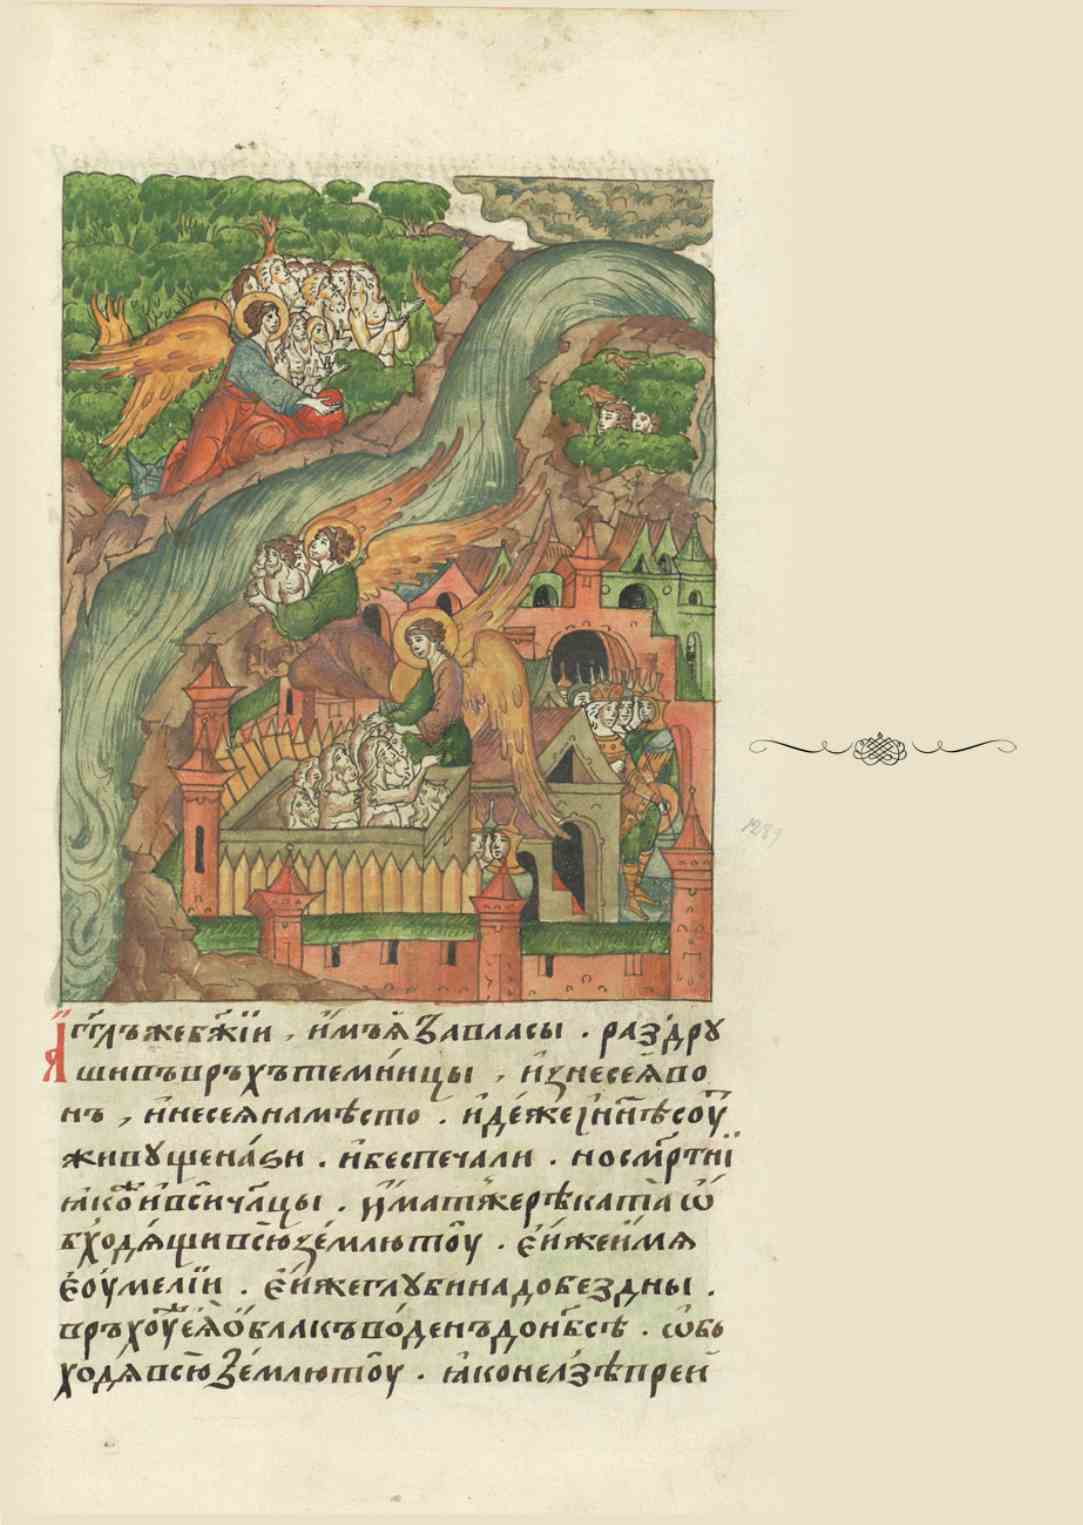 А҆гг҃лъ же бж҃їи, и҆мъ ꙗ҆ за власы. раз̾дрꙋ
шивъ връхъ темни́цы, и҆ꙁнесе ѧ҆ во
нъ, и҆ несе ѧ на мѣсто. и҆дѣ́же і҆ нн҃ѣ соу҆
живꙋще на́зи. и҆ беспечали. но смр҃тнї
ꙗ҆кѡ и҆ вси чл҃цы. и҆мат же рѣка та ѡ҆
бходѧ́щи всю зе́млю тоу. е҆йже и҆мѧ
е҆ѵ҆мелїи. е҆йже глꙋбина до бездны.
връхоу же еѧ҆ о҆блакъ во́денъ до нб҃сѣ. ѡ҆бь
ходѧ всю зе́млю тоу. ꙗ҆ко нелзѣ прей
1289